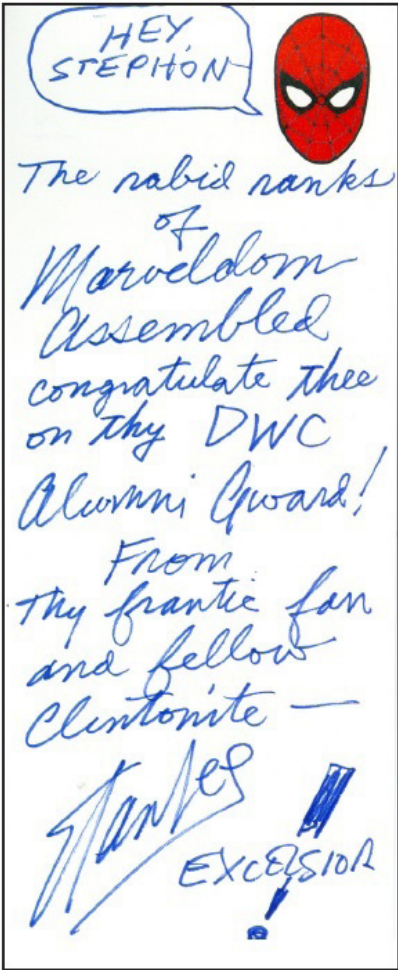 HEY,
STEPHON
The rabid ranks
of
Marveldom
Assembled
congratulate thee
on thy DWC
Alumni Award!
From
Thy frantic fan
and fellow
Clintonite —
Stan Lee
EXCELSIOR!